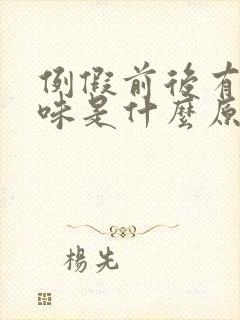 例假前後有
味是什麼原
楊先